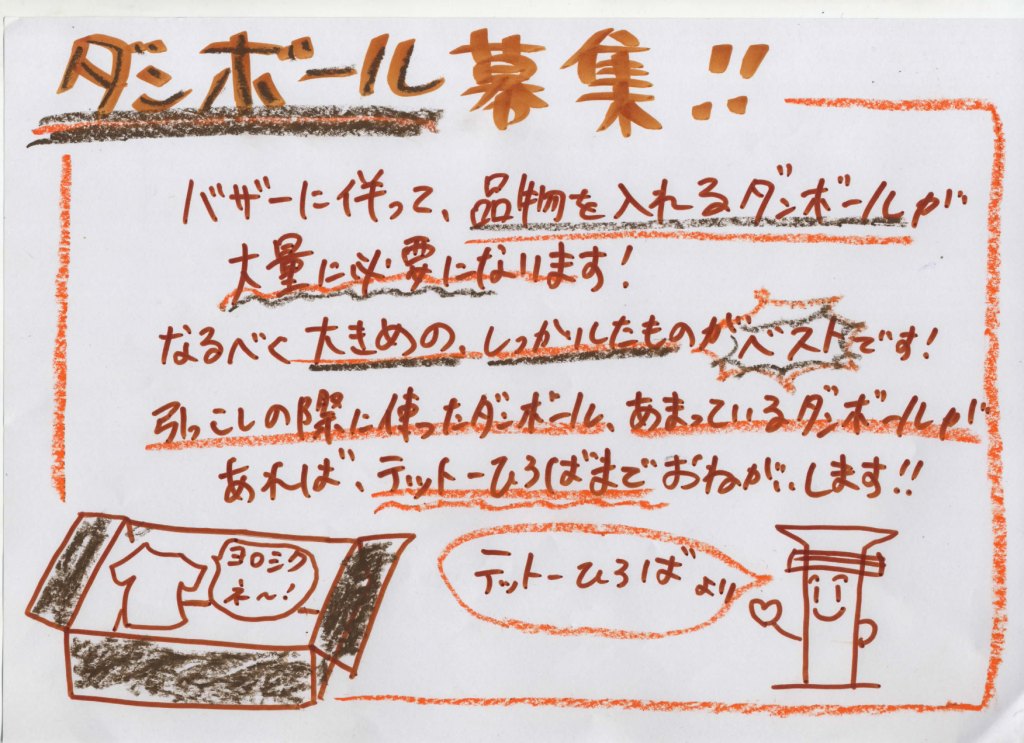 ダンボール募集!!
バザーに伴って、品物を入れるダンボールが
大量に必要になります!
なるべく大きめの、しっかりしたものがベストです!
引っこしの際に使ったダンボール、あまっているダンボールが
あれば、テットーひろばまでおねがいします!!
ヨロシク
ネ〜!
テットーひろばより